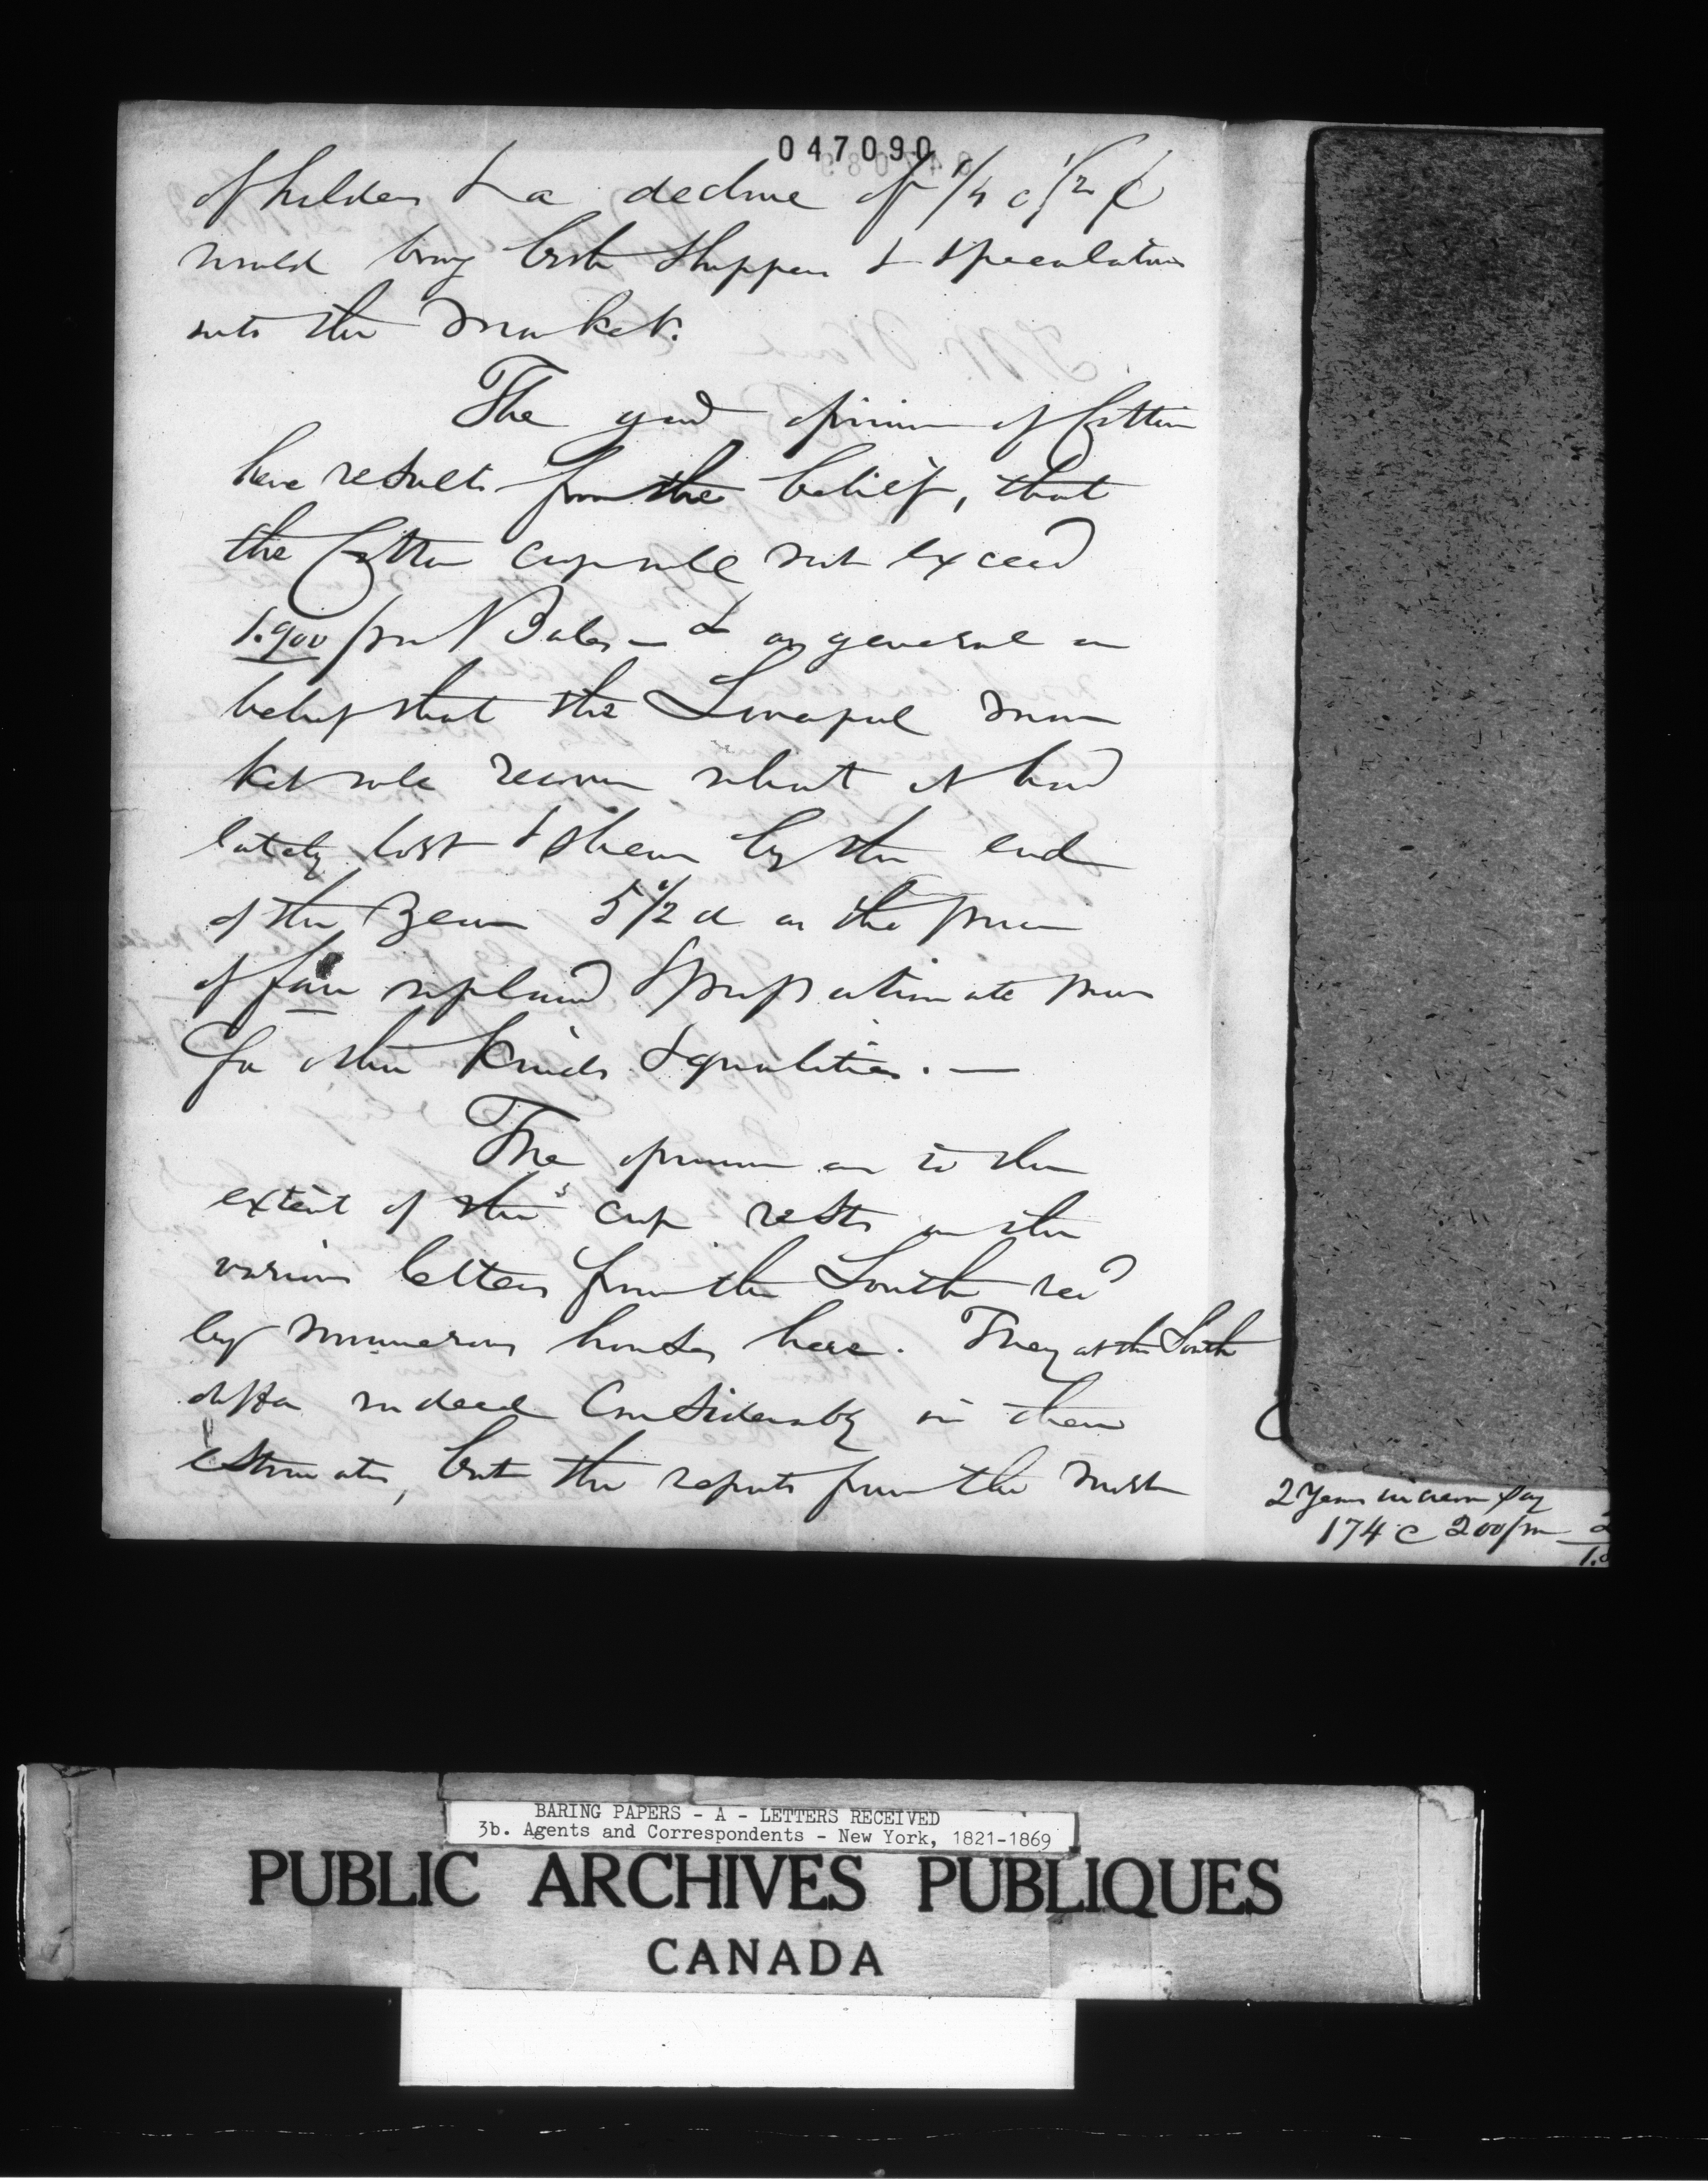 047090
of holders & a decline of 1/4 c 1/2 ¢
would bring both shippers & speculators
into the market.
The good opinion of Cotton
here results from the belief, that
the Cotton crop will not exceed
1.900/m Bales - & a general
belief that the Liverpool mar
ket will recover what it had
lately lost & show by the end
of the year 5 1/2 d as the price
of fair upland & proportionate prices
for other kinds & qualities. —
The opinion as to the
extent of the crop rests on the
various letters from the South recd
by numerous houses here. They at the South
differ indeed considerably in their
estimates, but the reports from the most
2 Years increase say
174 c 200/m
BARING PAPERS - A - LETTERS RECEIVED
3b. Agents and Correspondents - New York, 1821-1869
PUBLIC ARCHIVES PUBLIQUES
CANADA